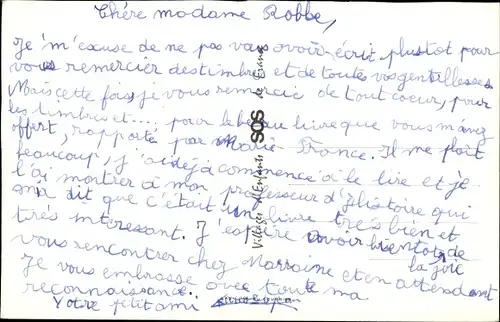 Chère madame Robbe,
Je m'excuse de ne pas vous avoir écrit plustot pour
vous remercier des timbres et de toutes vos gentillesses
Mais cette fois, je vous remercie de tout coeur, pour
les timbres et .... pour le beau livre que vous m'avez
offert, rapporté par Marie-France. Il me plait
beaucoup, j'ai dejà commencé à le lire et je
l'ai montrer à mon professeur d'Histoire qui
m'a dit que c'était un livre très bien et
très interessant. J'espère avoir bientot de
la joie
vous rencontrer chez Marraine et en attendant
Je vous embrasse avec toute ma
reconnaissance.
Votre petit ami
Villages d'Enfants SOS de France